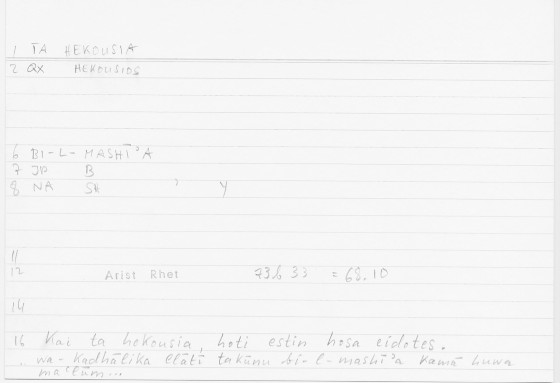 1 TA HEKOUSIA
2 QX HEKOUSIOS
6 BI-L-MASHĪʾA
7 JP B
8 NA SH ʾ Y
11
12 Arist Rhet 73b 33 = 68.10
14
16 Kai ta hekousia, hoti estin hosa eidotes.
wa-kadhālika llātī takūnu bi-l-mashīʾa kamā huwa
maʿlūm...